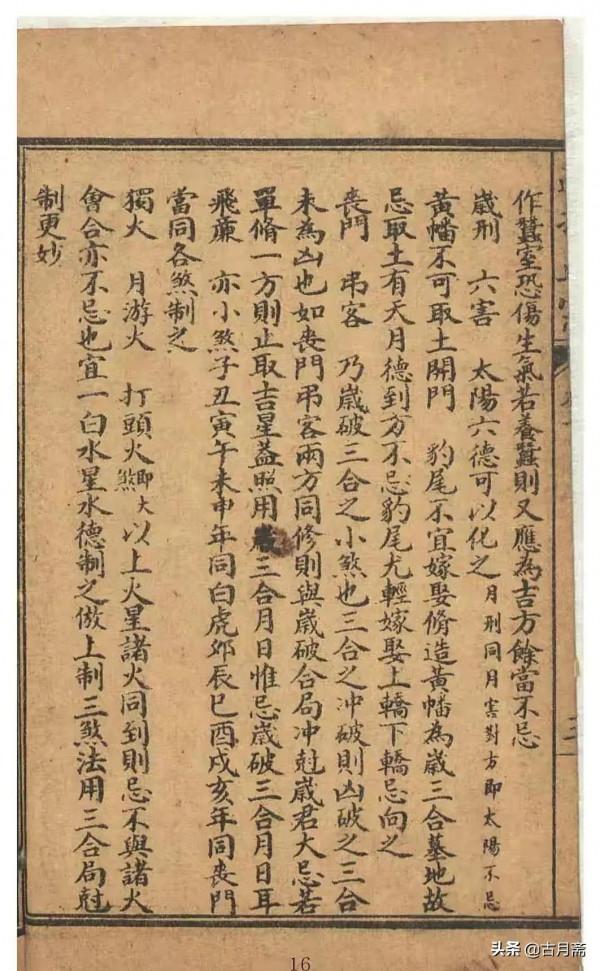 作蠶室恐傷生氣若養蠶則又應為吉方餘當不忌
歲刑 六害 太陽六德可以化之 月刑同月害對方即太陽不忌
黃幡不可取土開門 豹尾不宜嫁娶脩造黃幡為歲三合墓地故
忌取土有天月德到方不忌豹尾尤輕嫁娶上轎下轎忌向之
喪門 弔客 乃歲破三合之小煞也三合之冲破則凶破之三合
未為凶也如喪門弔客兩方同修則與歲破合局冲尅歲君大忌若
單脩一方則止取吉星蓋照用歲三合月日惟忌歲破三合月日耳
飛廉 亦小煞子丑寅午未申年同白虎卯辰巳酉戌亥年同喪門
當同各煞制之
獨火 月游火 打頭火 即大煞 以上火星諸火同到則忌不與諸火
會合亦不忌也宜一白水星水德制之倣上制三煞法用三合局尅
制更妙
三
16
头条 @古月斋